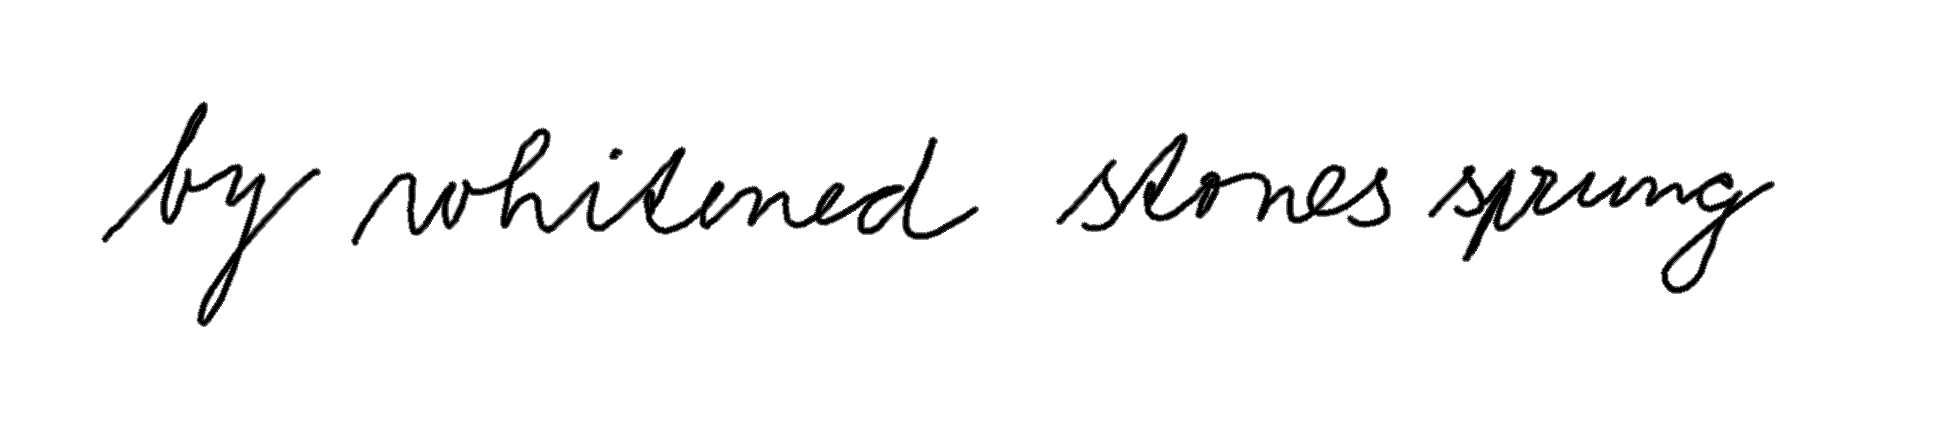 by whitened stones sprung